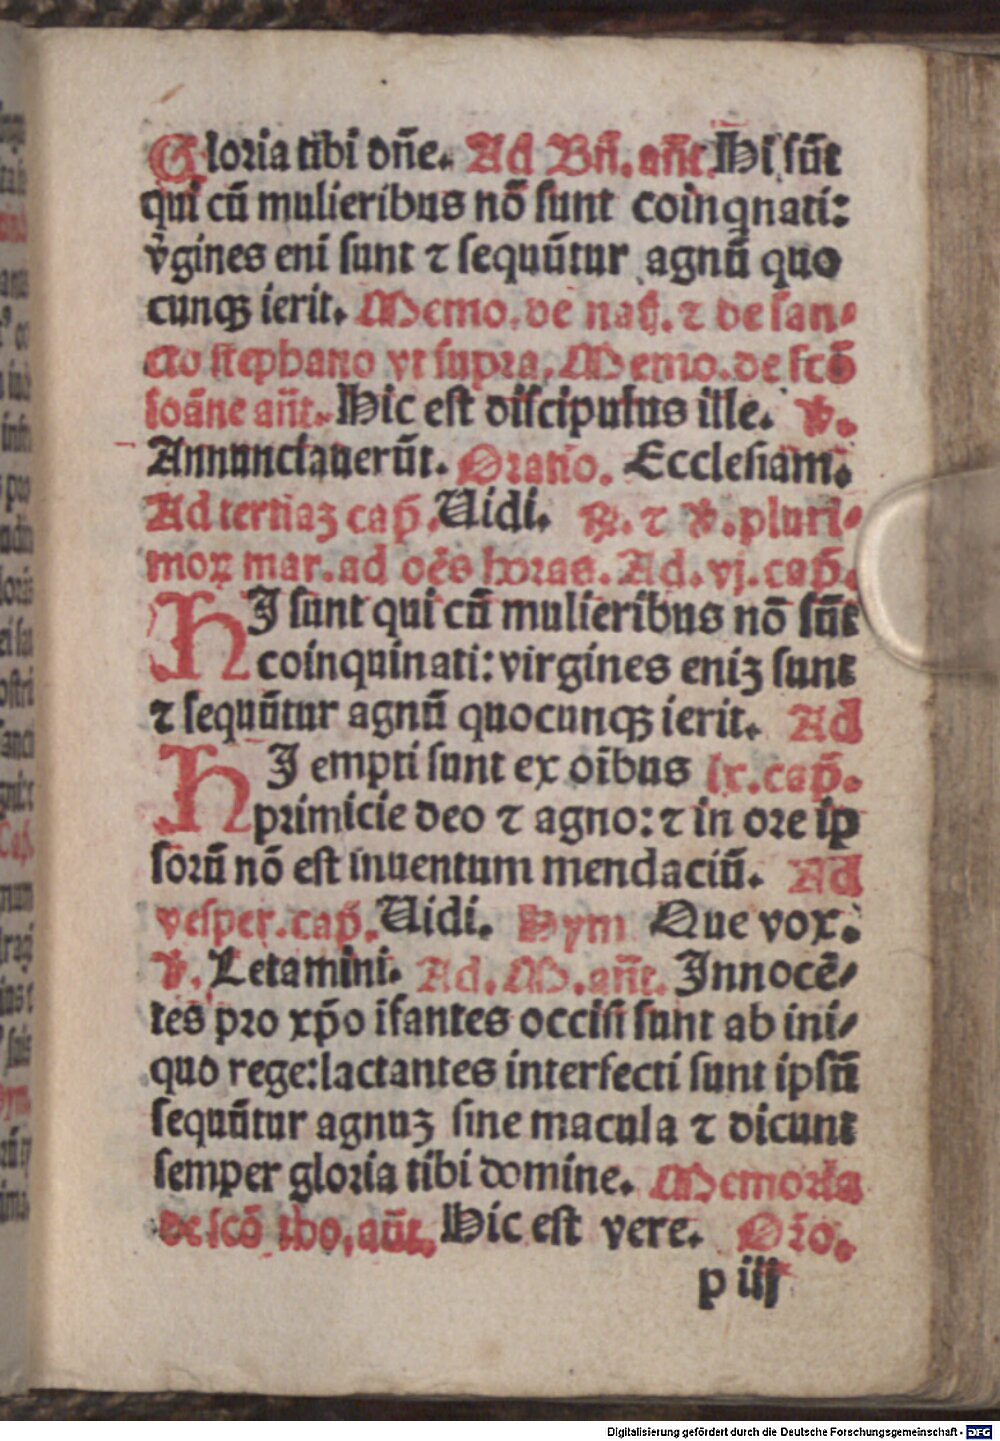 Gloria tibi dn̄e. Ad Bn̄. an̄t. Hi sūt
qui cū mulieribus nō sunt coinqnati:
v̾gines eni sunt ⁊ sequūtur agnū quo
cunqꝫ ierit. Memo. de natꝭ. ⁊ de san⸗
cto stephano vt supra. Memo. de scō
ioāne an̄t. Hic est discipulus ille. ℣.
Annunciauerūt. Oratio. Ecclesiam.
Ad tertiaꝫ cap̄. Uidi. ℟. ⁊ ℣. pluri⸗
moꝝ mar. ad oēs horas. Ad. vj. cap̄.
HI sunt qui cū mulieribus nō sūt
coinquinati: virgines eniꝫ sunt
⁊ sequūtur agnū quocunqꝫ ierit. Ad
HI empti sunt ex oībus ix. cap̄.
primicie deo ⁊ agno: ⁊ in ore ip
sorū nō est inuentum mendaciū. Ad
vesper. cap̄. Uidi. Hym Que vox.
℣. Letamini. Ad. M. an̄t. Innocē⸗
tes pro xp̄o īfantes occisi sunt ab ini⸗
quo rege: lactantes interfecti sunt ipsū
sequūtur agnuꝫ sine macula ⁊ dicunt
semper gloria tibi domine. Memoria
de scō tho. an̄t. Hic est vere. Or̄o.
p iij
Digitalisierung gefördert durch die Deutsche Forschungsgemeinschaft - DFG